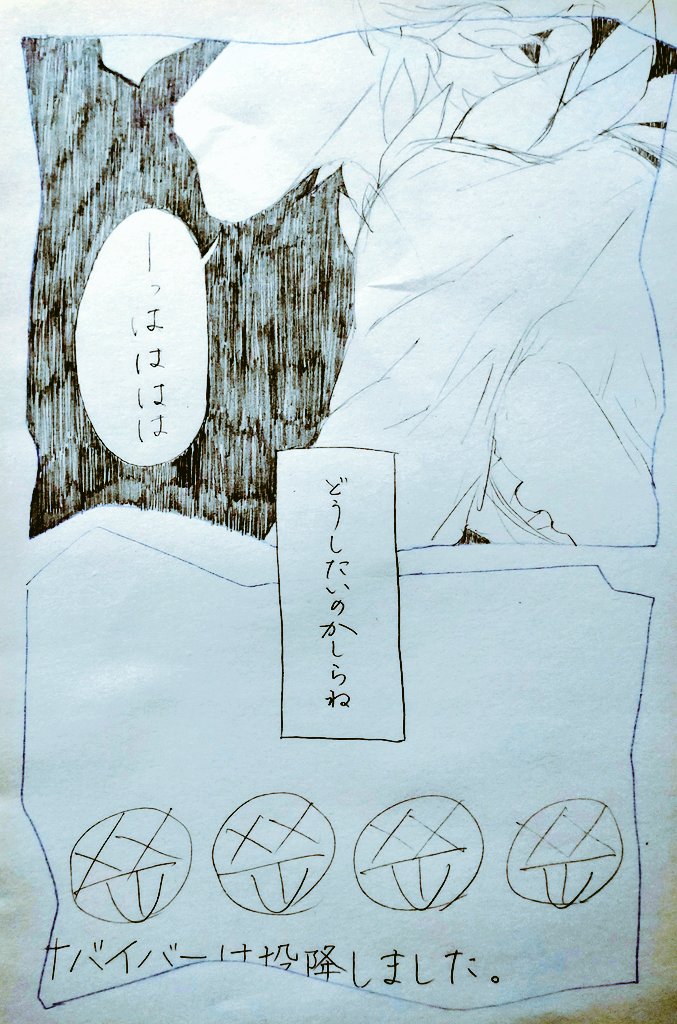 ーっはははは
どうしたいのかしらね
サバイバーは投降しました。